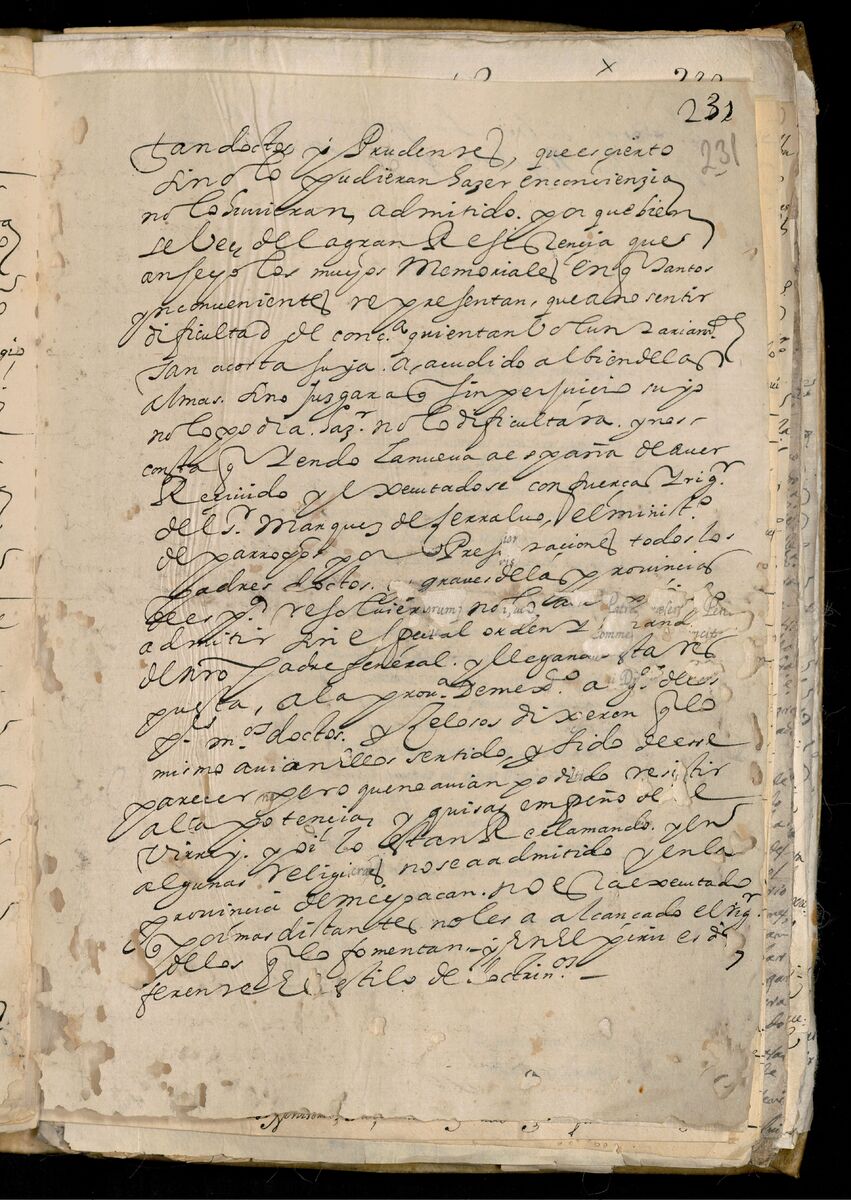 231
231
tan doctos y Prudentes, que es çierto
si no lo pudieran hazer en conçiençia
no lo huvieran admitido. por que bien
se ve, de la gran Resistençia que
an seyo los muchos Memoriales en q̃ tantos
ynconvenientes representan, que a no sentir
dificultad de conc.ª quien tan voluntariam.te
tan a costa suya. a, acudido al bien de las
almas. sino juzgara q̃ sin perjuicio suyo
no lo podia. haz.r no lo dificultára. y nos
consta q̃ la nueva de españa de aver
Reçivido y executadose con fuerça y rig.r
del s.r Marques de serralvo, el minist.o
de parrocos por Pres todos los
padres doctos. graves de las provincias
de esp.ª resolvieron no lo
admitir sin espeçial orden y
de nro Padre General. y llegando esta res
puesta, a la prov.ª De mex.co a
p.es m.os doctos. y zelosos dixeron q̃ lo
mismo avian ellos sentido, y sido de esse
pareçer pero que no avian podido resistir
a la potençia, y quisas empeño de
Virrey. y oi lo estan Reclamando. y en
algunas religiones no se a admitido y en la
provincia de mechoacan. no esta executado
q̃ por mas distante no les a alcançado el rig.r
dellos q̃ lo fomentan. y En El piru es di
ferente El estilo de Doctrin.os